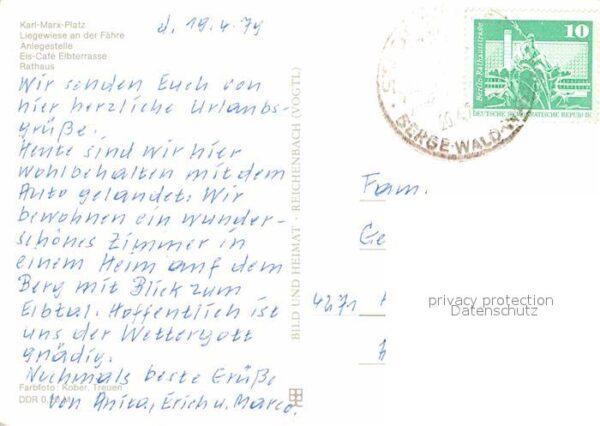 Karl-Marx-Platz
Liegewiese an der Fähre
Anlegestelle
Eis-Café Elbterrasse
Rathaus
d. 19.4.79
Wir senden Euch von
hier herzliche Urlaubs-
grüße.
Heute sind wir hier
wohlbehalten mit dem
Auto gelandet. Wir
bewohnen ein wunder-
schönes Zimmer in
einem Heim auf dem
Berg mit Blick zum
Elbtal. Hoffentlich ist
uns der Wettergott
gnädig.
Nochmals beste Grüße
von Anita, Erich u. Marco.
Farbfoto: Kober, Treuen
DDR 0,20 M
BILD UND HEIMAT · REICHENBACH (VOGTL)
10
Berlin-Rathausstraße
DEUTSCHE DEMOKRATISCHE REPUBLIK
BERGE-WALD
Fam.
Ge
4271
privacy protection
Datenschutz